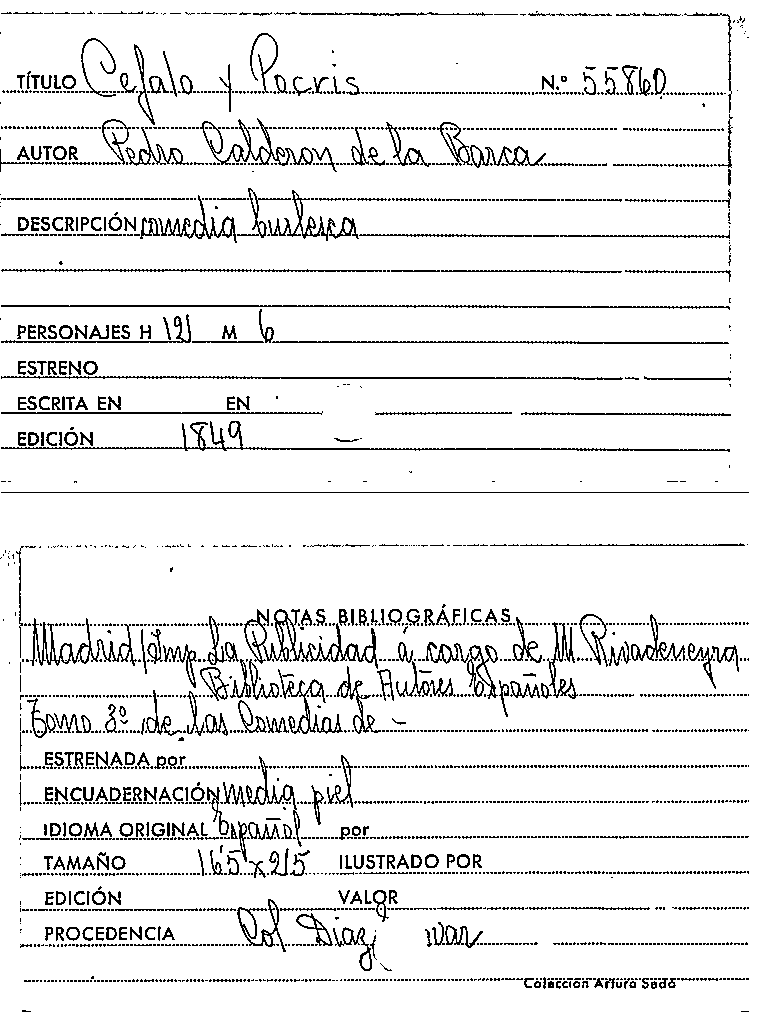 TÍTULO Cefalo y Pocris N.º 55860
AUTOR Pedro Calderon de la Barca
DESCRIPCIÓN comedia burlesca
PERSONAJES H 12 M 6
ESTRENO
ESCRITA EN EN
EDICIÓN 1849 —
NOTAS BIBLIOGRÁFICAS
Madrid/Imp La Publicidad á cargo de M Rivadeneyra
Biblioteca de Autores Españoles
Tomo 3º de las Comedias de -
ESTRENADA por
ENCUADERNACIÓN media piel
IDIOMA ORIGINAL Español por
TAMAÑO 165 x 215 ILUSTRADO POR
EDICIÓN VALOR
PROCEDENCIA Col Diaz
Colección Arturo Sedó